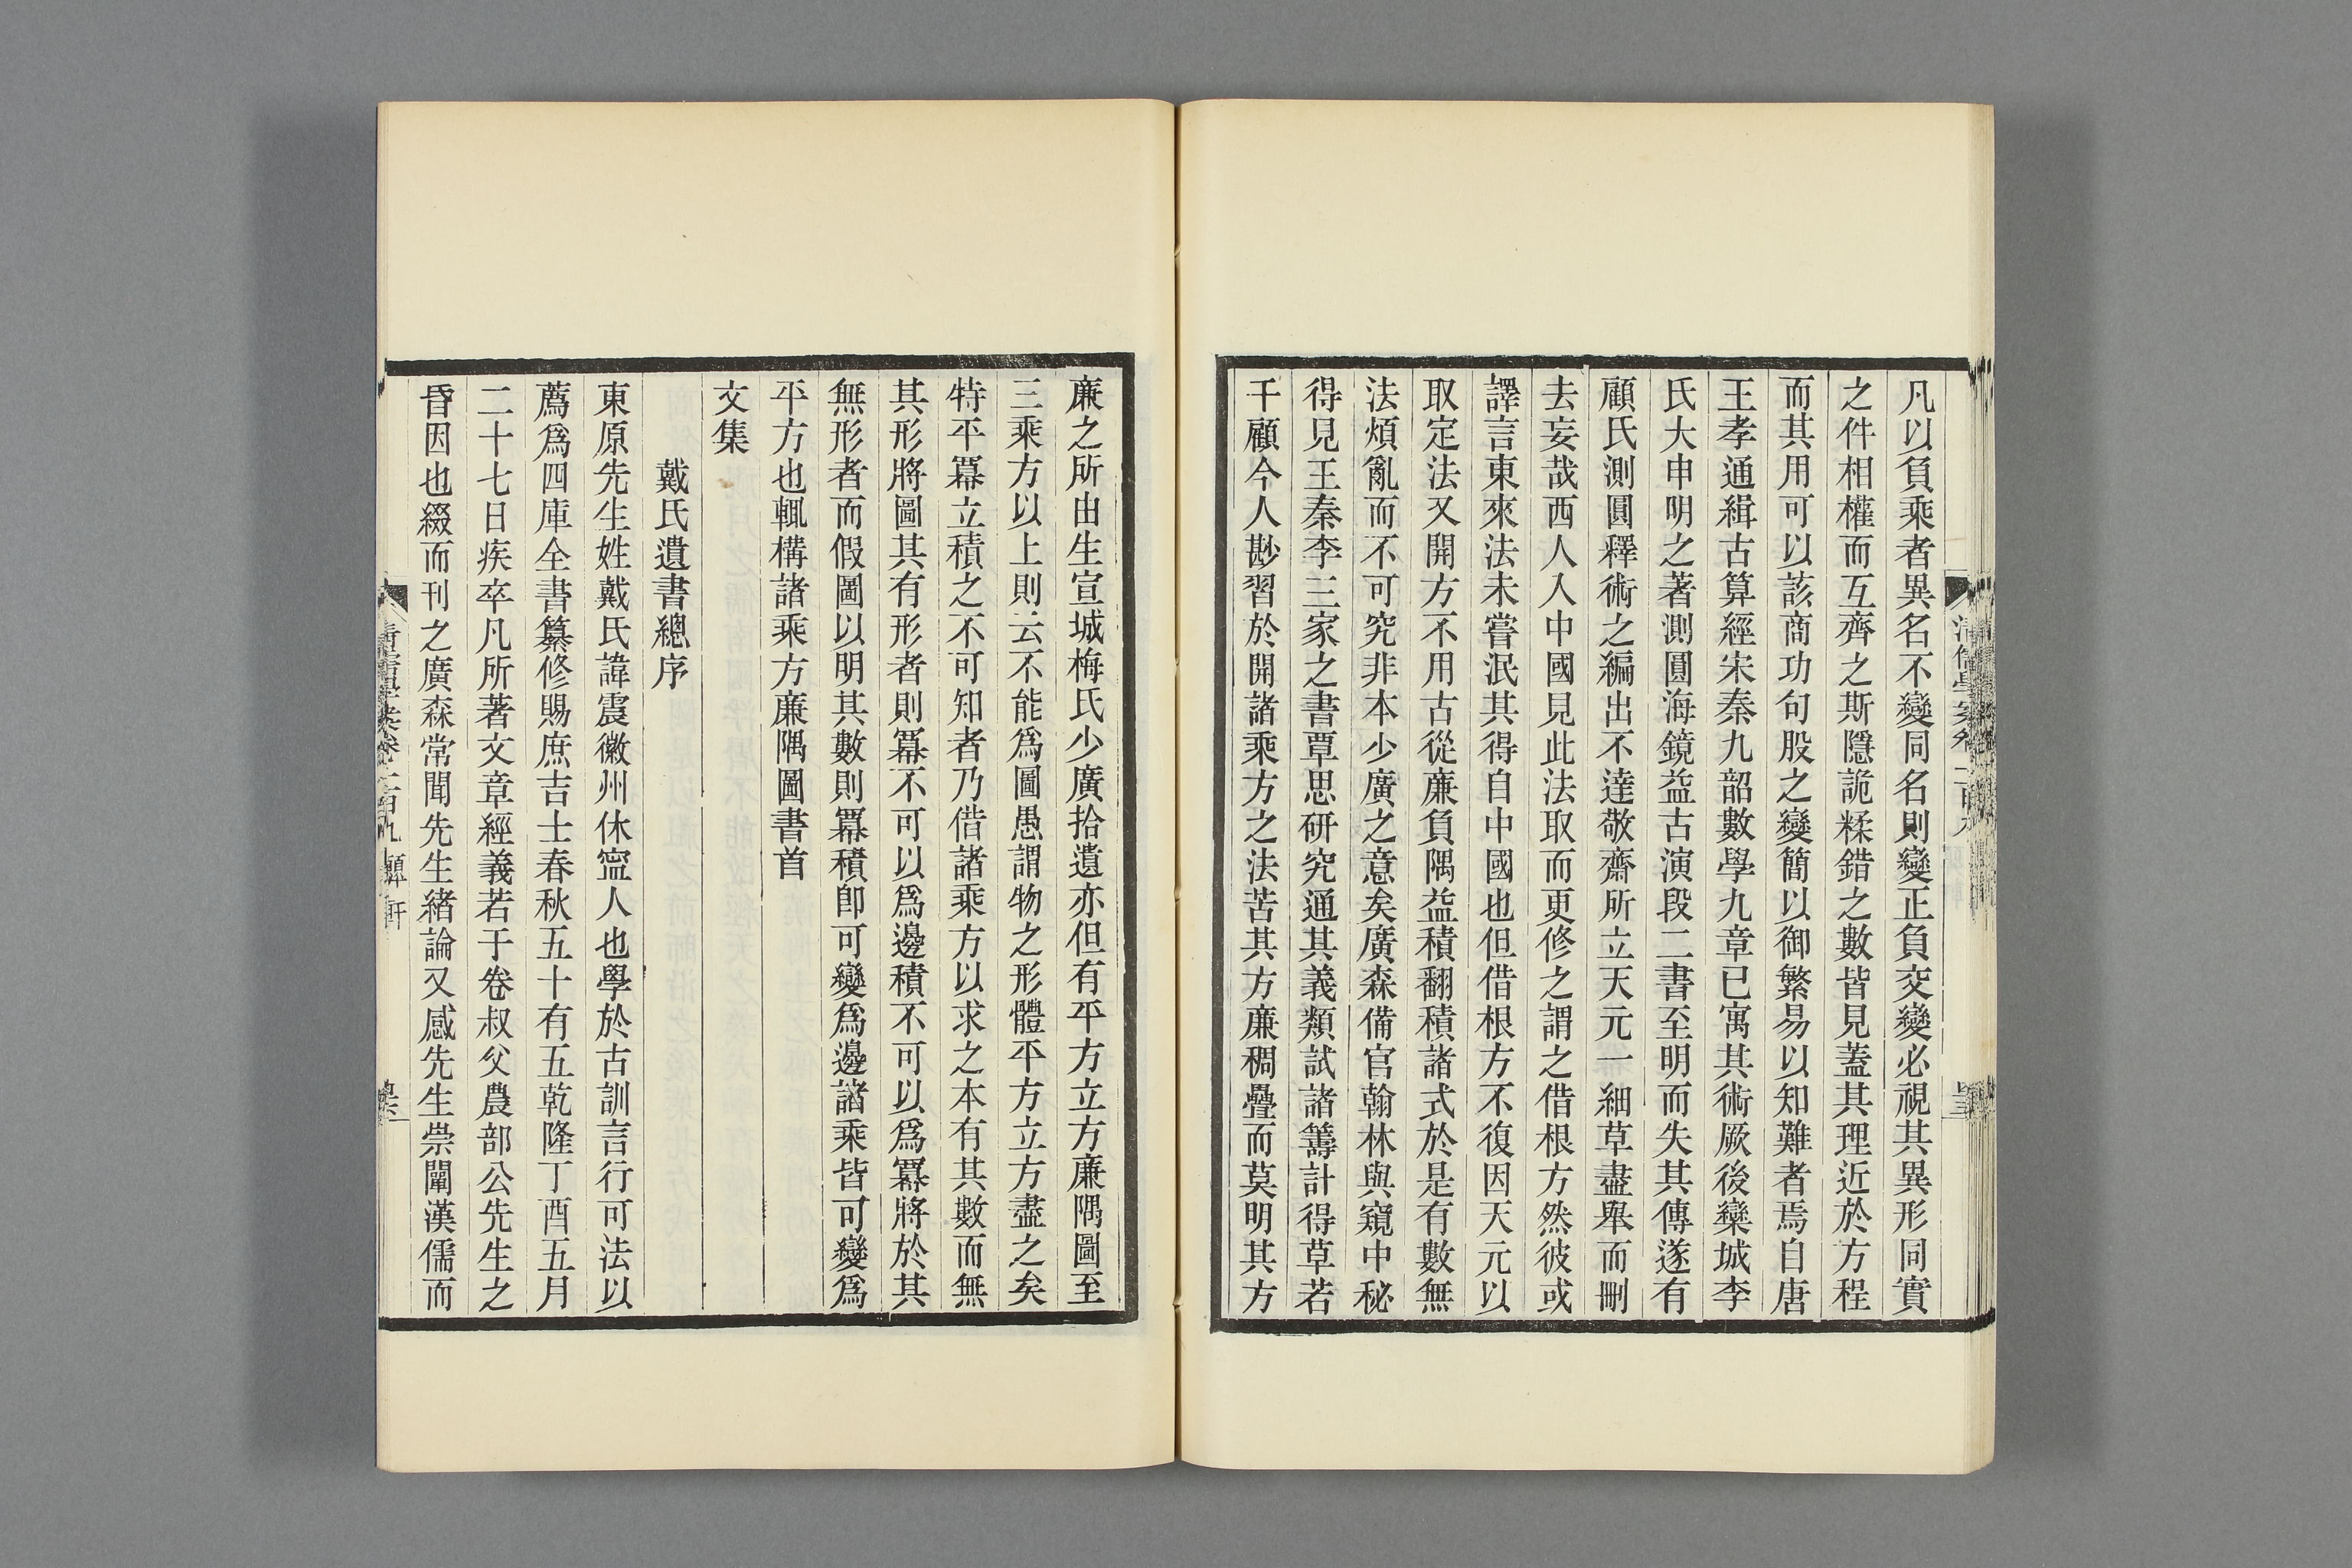 凡以負乘者異名不變同名則變正負交變必視其異形同實
之件相權而互齊之斯隱詭糅錯之數皆見蓋其理近於方程
而其用可以該商功句股之變簡以御繁易以知難者焉自唐
王孝通緝古算經宋秦九韶數學九章已寓其術厥後欒城李
氏大申明之著測圓海鏡益古演段二書至明而失其傳遂有
顧氏測圓釋術之編出不達敬齋所立天元一細草盡舉而刪
去妄哉西人入中國見此法取而更修之謂之借根方然彼或
譯言東來法未嘗泯其得自中國也但借根方不復因天元以
取定法又開方不用古從廉負隅益積翻積諸式於是有數無
法煩亂而不可究非本少廣之意矣廣森備官翰林與窺中秘
得見王秦李三家之書覃思研究通其義類試諸籌計得草若
干顧今人尠習於開諸乘方之法苦其方廉稠疊而莫明其方
廉之所由生宣城梅氏少廣拾遺亦但有平方立方廉隅圖至
三乘方以上則云不能爲圖愚謂物之形體平方立方盡之矣
特平冪立積之不可知者乃借諸乘方以求之本有其數而無
其形將圖其有形者則冪不可以爲邊積不可以爲冪將於其
無形者而假圖以明其數則冪積卽可變爲邊諸乘皆可變爲
平方也輒構諸乘方廉隅圖書首
文集
戴氏遺書總序
東原先生姓戴氏諱震徽州休寧人也學於古訓言行可法以
薦爲四庫全書纂修賜庶吉士春秋五十有五乾隆丁酉五月
二十七日疾卒凡所著文章經義若干卷叔父農部公先生之
昏因也綴而刊之廣森常聞先生緒論又感先生崇闡漢儒而